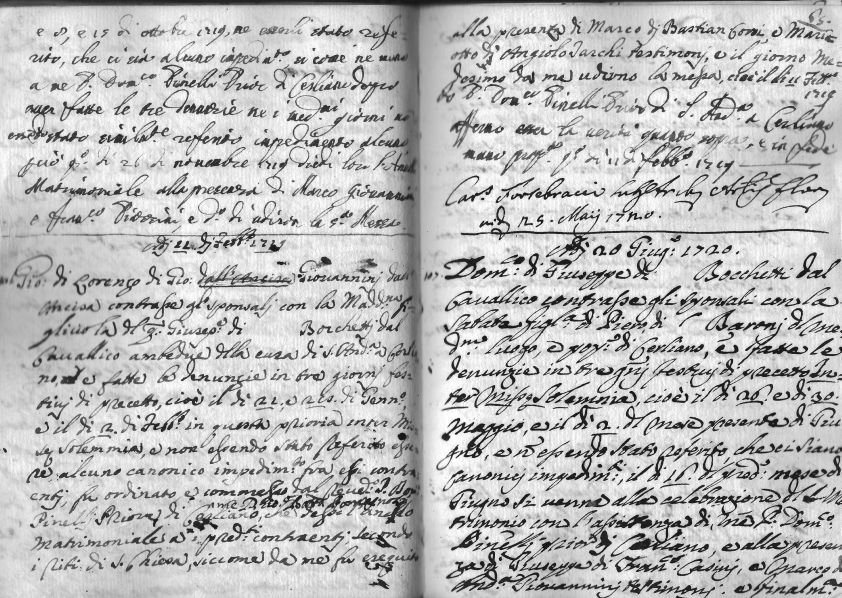 e 8, e 15 di ottobre 1719, ne essendi stato refe=
rito, che ci sia alcuno impedim.to, si come ne meno
a ne P. Dom.co Pinelli Prior di Cerliano dopo
aver fatte le tre denunzie ne i med.mi giorni
stato similm.te referito impedimento alcuno
di 26 di novembre 1719 diedi loro l'Anello
Matrimoniale alla presenza di Marco Giovannini
e Fran.co e d.o di udiron la S.ta Messa
Adj 11 di Febb.o 1719
Gio: di Lorenzo di Gio: Giovannini dall'
Ancisa contrasse gli sponsalj con la Madd.na fi=
gliuola del q. Giusep.e di Bocchettj dal
Cavallico ambedue della cura di S. And.a a Cerlia
no, e fatte le denuncie in tre giorni fes=
tivj di precetto, cioè il di 21, e 28 di Genn.o
e il di 2 di Febb.o in questa prioria inter Mis=
se Solemnia, e non essendo stato referito esse=
re alcuno canonico impedim.to fra essi contra=
entj, fu ordinato e commesso dal P. Dom.
Pinelli Priore di Cerliano, che desse l'anello
Matrimoniale a i pred.ti contraentj secondo
i riti di S. Chiesa, siccome da me fu eseguito
65.
alla presenza di Marco di Bastian Comi, e Mari=
otto di Angiolo Jarchi testimonj, e il giorno Me=
desimo da me udirono la messa, cioè il di 11 Febb.o
1719
Io P. Dom.co Pinelli Prior di S. And.a a Cerliano
affermo esser la verità quanto sopra, e in fede
mano prop.a q.o di 11 di Febb.o 1719
Car.s Fortebracci
25. Maij 1720.
Adj 20 Giug.o 1720.
Dom.co di Giuseppe di Bocchetti dal
Cavallico contrasse gli sponsali con la
Sabata figl.a di Piero di Baronj del me=
d.mo luogo, e pop.o di Cerliano, e fatte le
denunzie in tre gnj festivj di precetto In=
ter Missar. Solemnia, cioè il di 26. e di 30.
Maggio, e il di 2. del mese presente di Giu
gno, e n essendo stato referito, che ci siano
canonicj impedim.ti, il di 16. di pred.o mese di
Giugno si venne alla celebrazione del Ma
trimonio con l'assistenza di me P. Dom.co
Pinellj prior di Cerliano, e alla presen
za di Giuseppe di Fran.co Casinj, e Marco di
And.a Giovanninj testimonj. e finalm.te